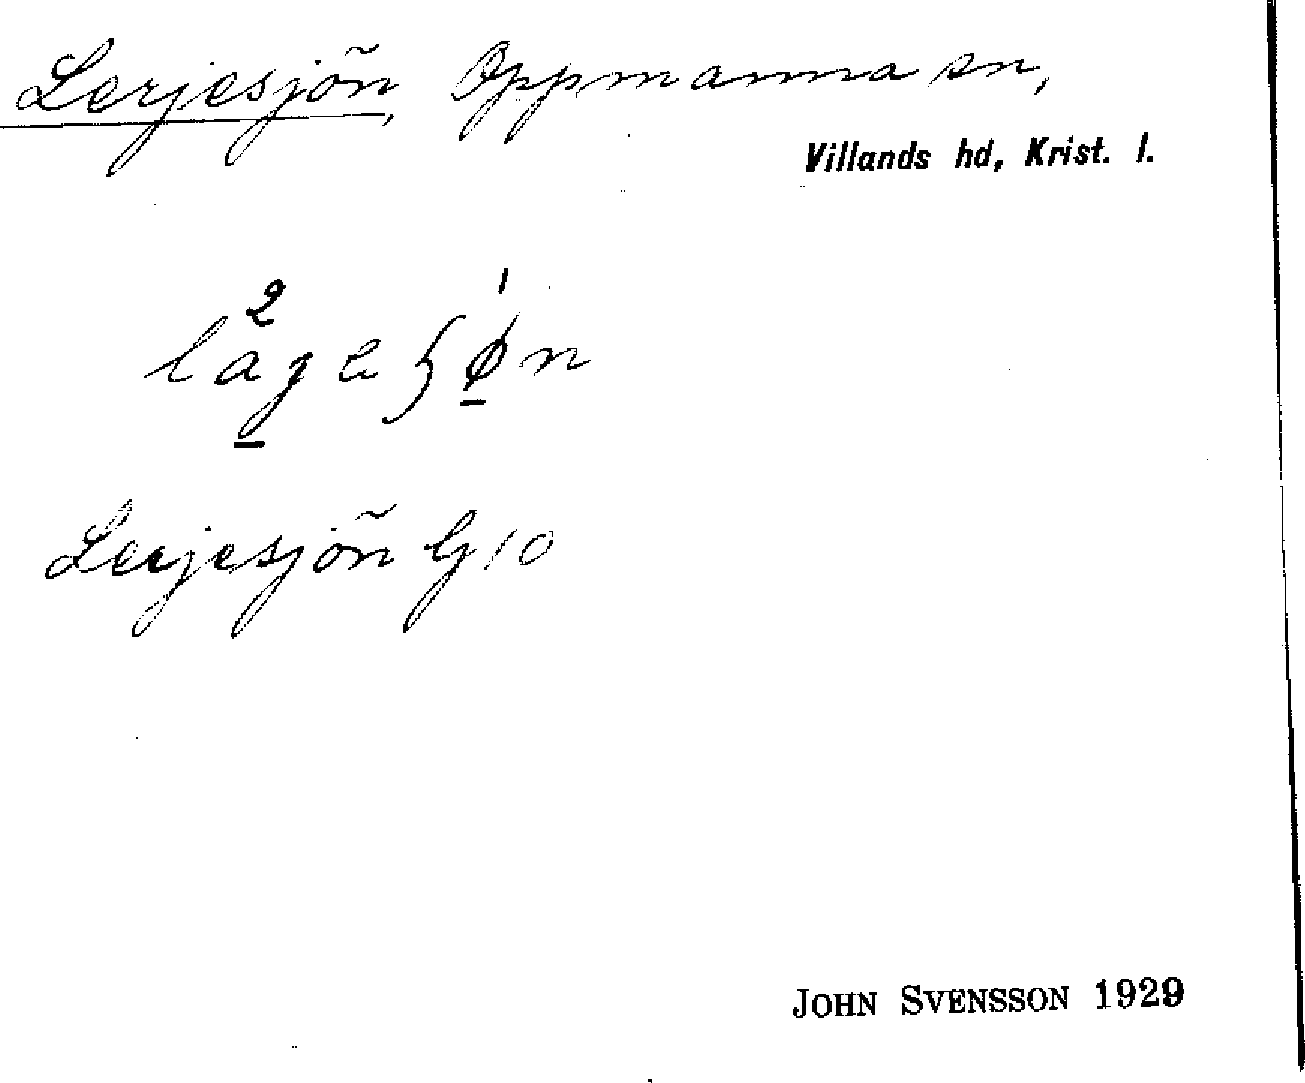 Lerjesjön, Oppmanna sn,
Villands hd, Krist. l.
Lerjesjön G10
JOHN SVENSSON 1929